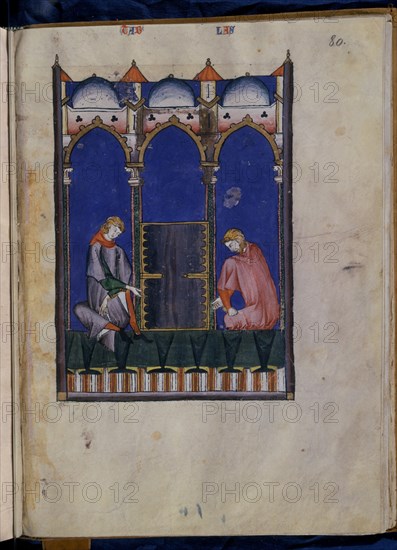 TAB LAS
80.
PHOTO 12 PHOTO 12 PHOTO 12 PHOTO 12
PHOTO 12 PHOTO 12 PHOTO 12 PHOTO 12
PHOTO 12 PHOTO 12 PHOTO 12 PHOTO 12
PHOTO 12 PHOTO 12 PHOTO 12 PHOTO 12
PHOTO 12 PHOTO 12 PHOTO 12 PHOTO 12